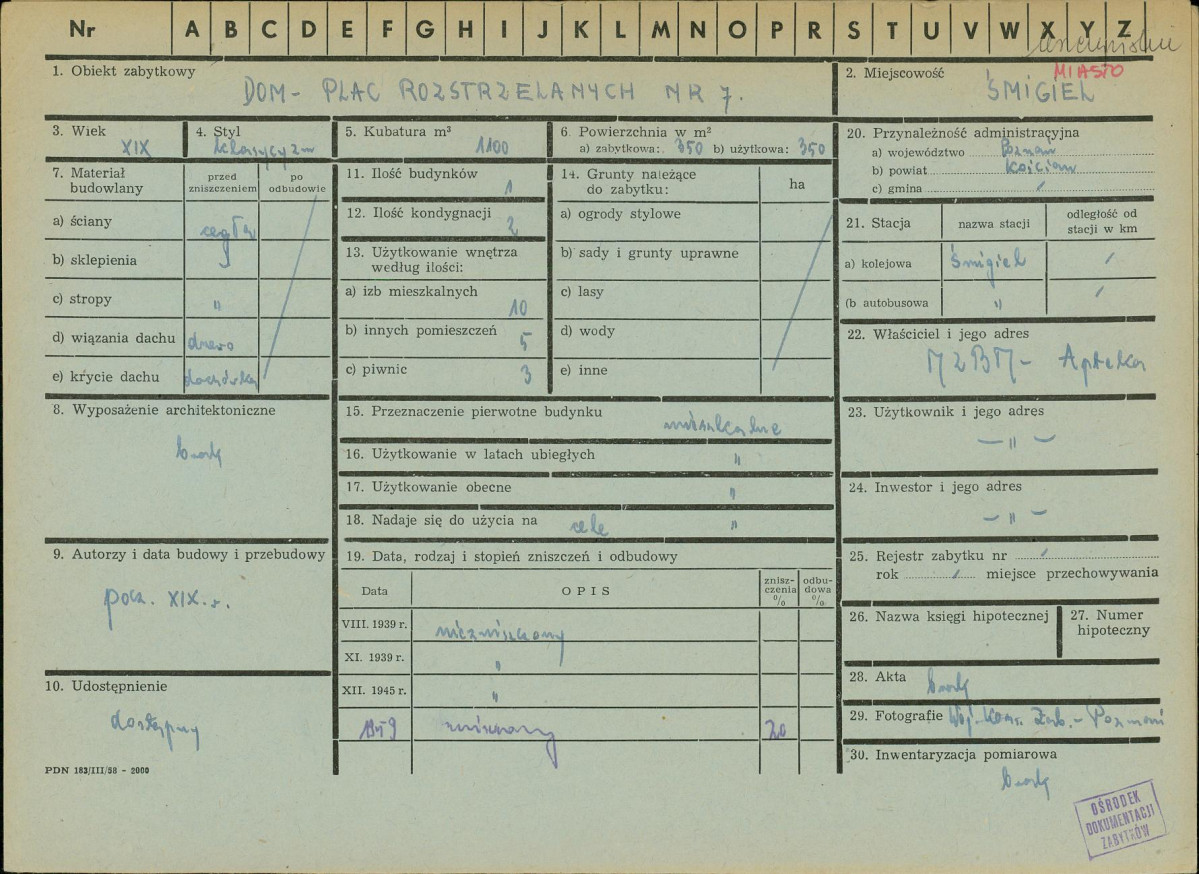 Nr A B C D E F G H I J K L M N O P R S T U V W X Y Z
1. Obiekt zabytkowy
DOM - PLAC ROZSTRZELANYCH NR 7.
2. Miejscowość MIASTO
ŚMIGIEL
3. Wiek
XIX
4. Styl
klasycyzm
5. Kubatura m³
1100
6. Powierzchnia w m²
a) zabytkowa: 350 b) użytkowa: 350
7. Materiał budowlany
przed zniszczeniem
po odbudowie
a) ściany cegła
b) sklepienia
c) stropy "
d) wiązania dachu drewo
e) krycie dachu dachówka
8. Wyposażenie architektoniczne
brak
9. Autorzy i data budowy i przebudowy
pocz. XIX.w.
10. Udostępnienie
dostępny
PDN 183/III/58 - 2000
11. Ilość budynków
1
12. Ilość kondygnacji
2
13. Użytkowanie wnętrza
według ilości:
a) izb mieszkalnych
10
b) innych pomieszczeń
5
c) piwnic 3
14. Grunty należące
do zabytku:
ha
a) ogrody stylowe
b) sady i grunty uprawne
c) lasy
d) wody
e) inne
15. Przeznaczenie pierwotne budynku
mieszkalne
16. Użytkowanie w latach ubiegłych "
17. Użytkowanie obecne "
18. Nadaje się do użycia na cele "
19. Data, rodzaj i stopień zniszczeń i odbudowy
Data
OPIS
znisz-
czenia
%
odbu-
dowa
%
VIII. 1939 r. niezniszczony
XI. 1939 r. "
XII. 1945 r. "
1959 20
20. Przynależność administracyjna
a) województwo Poznań
b) powiat Kościan
c) gmina /
21. Stacja
nazwa stacji
odległość od
stacji w km
a) kolejowa Śmigiel /
(b autobusowa " /
22. Właściciel i jego adres
MZBM - Apteka
23. Użytkownik i jego adres
— " —
24. Inwestor i jego adres
— " —
25. Rejestr zabytku nr /
rok / miejsce przechowywania
26. Nazwa księgi hipotecznej
27. Numer
hipoteczny
28. Akta brak
29. Fotografie Woj. Kons. Zab. - Poznań
30. Inwentaryzacja pomiarowa
brak
OŚRODEK
DOKUMENTACJI
ZABYTKÓW